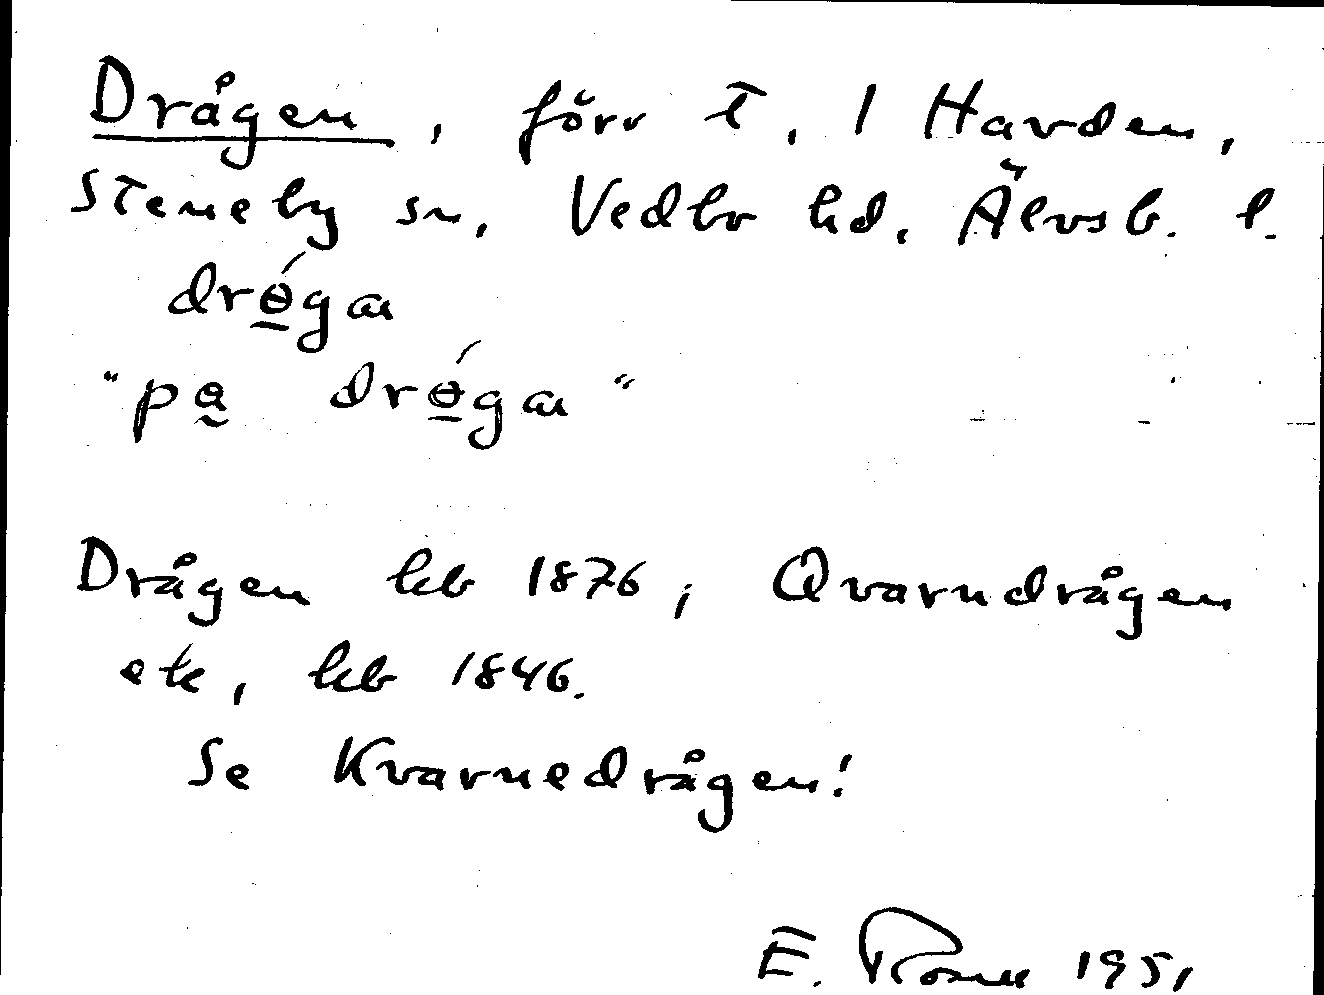 Drågen, förr t. 1 Harden,
Steneby sn, Vedbo hd. Älvsb. l.
drɵ́gan
"pa drɵ́gan"
Drågen hb 1876; Qvarndrågen
etc, hb 1846.
Se Kvarnedrågen!
E. 1951